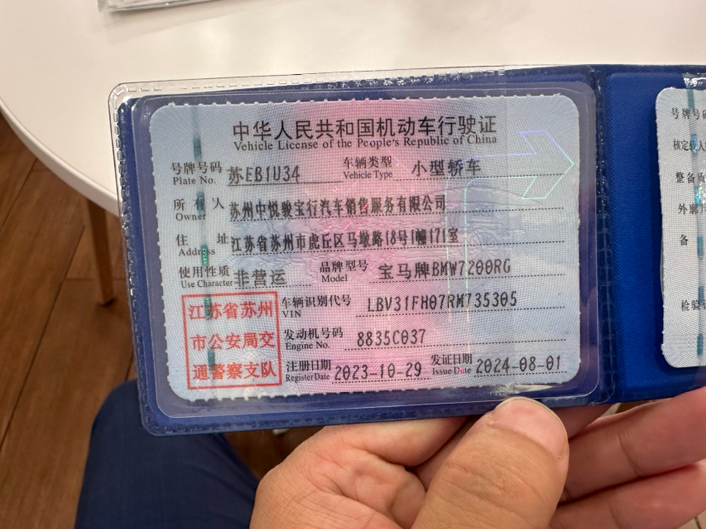 中华人民共和国机动车行驶证
Vehicle License of the People's Republic of China
号牌号码 苏EB1U34 车辆类型 小型轿车
Plate No. Vehicle Type
所有人 苏州中悦骏宝行汽车销售服务有限公司
Owner
住址 江苏省苏州市虎丘区马墩路18号1幢171室
Address
使用性质 非营运 品牌型号 宝马牌BMW7200RG
Use Character Model
江苏省苏州
市公安局交
通警察支队
车辆识别代号 LBV31FH07RM735305
VIN
发动机号码 8835C037
Engine No.
注册日期 2023-10-29 发证日期 2024-08-01
Register Date Issue Date
号牌号码
核定载人
整备质
外廓
备
检验